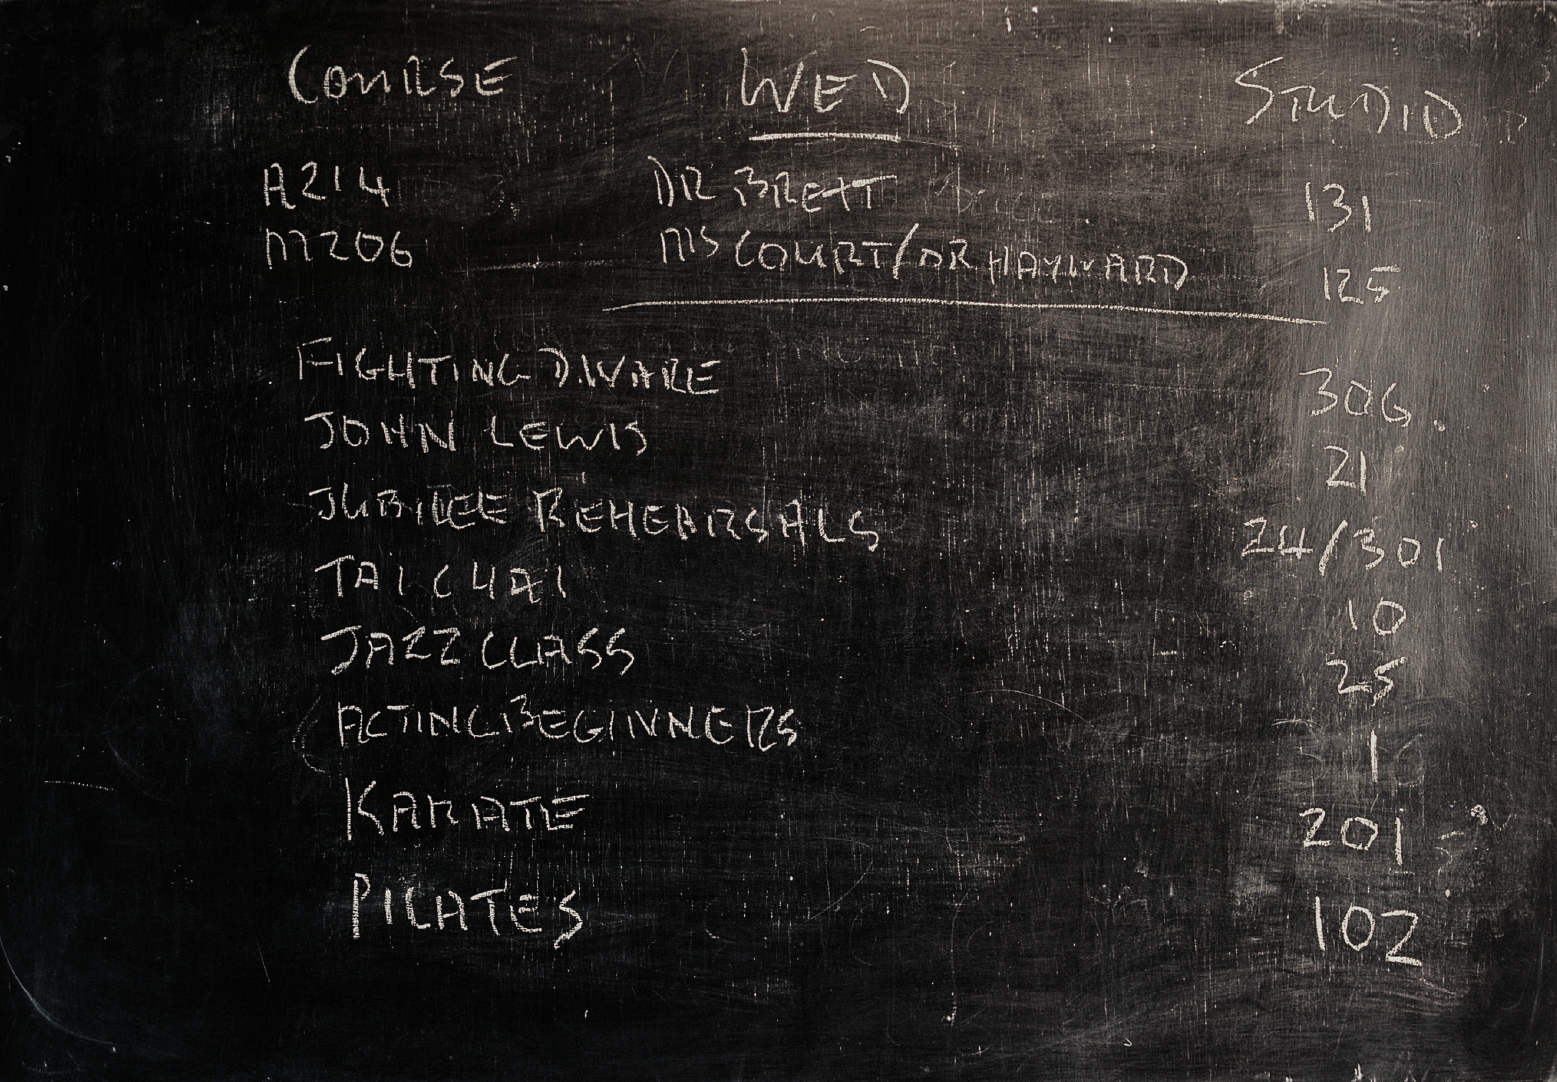 COURSE WED STUDIO
A214 DR BRETT 131
M206 MS COURT/DR HAYWARD 125
FIGHTING 306
JOHN LEWIS 21
JUBILEE REHEARSALS 24/301
TAI CHAI 10
JAZZ CLASS 25
ACTING BEGINNERS 1
KARATE 201
PILATES 102